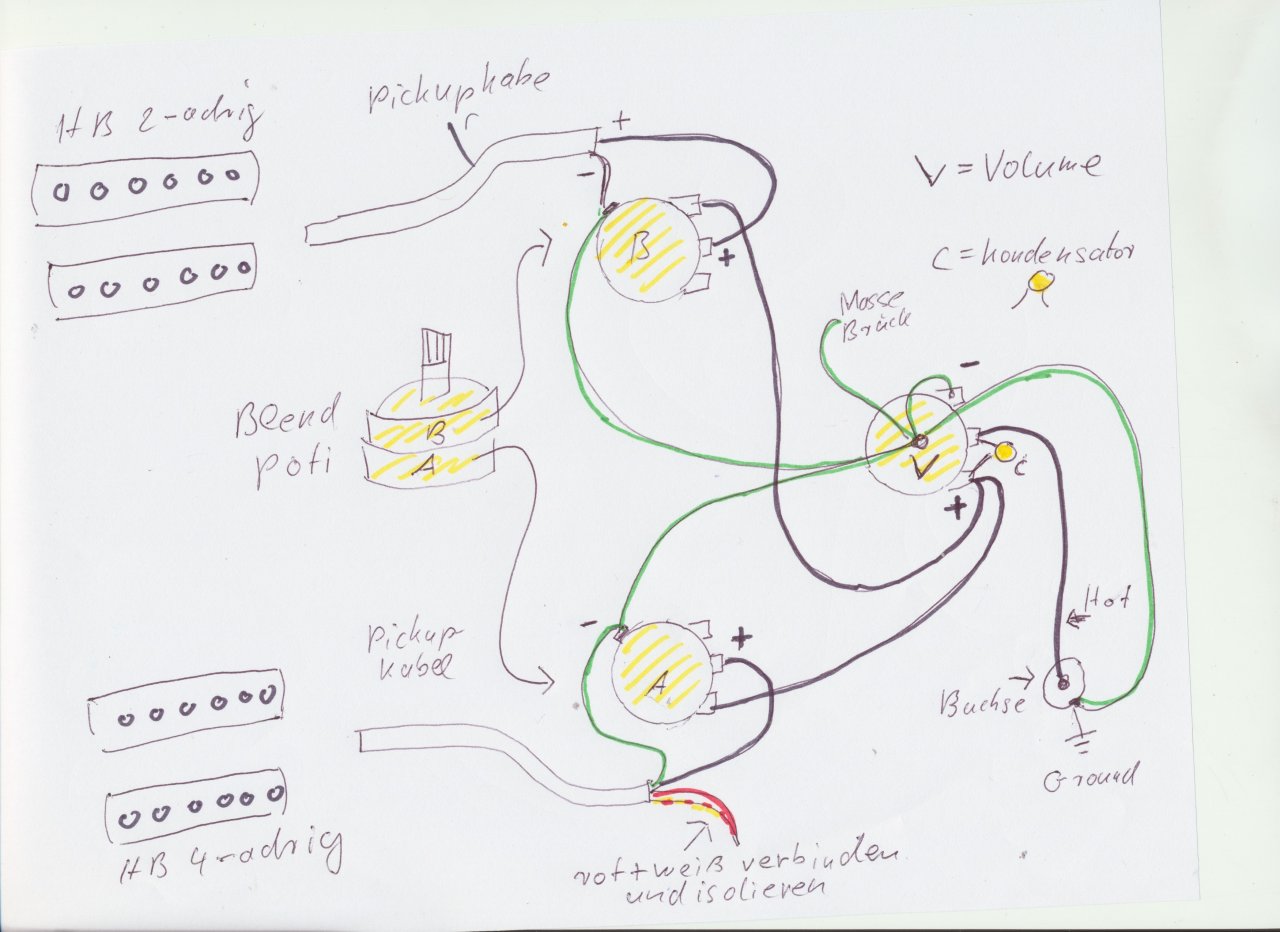 HB 2-adrig
Pickupkabe
+
-
B
+
V = Volume
C = Kondensator
Masse
Brück
-
Blend
poti
B
A
V
C
+
Pickup
kabel
-
A
+
Hot
Buchse
Ground
HB 4-adrig
rot+weiß verbinden
und isolieren